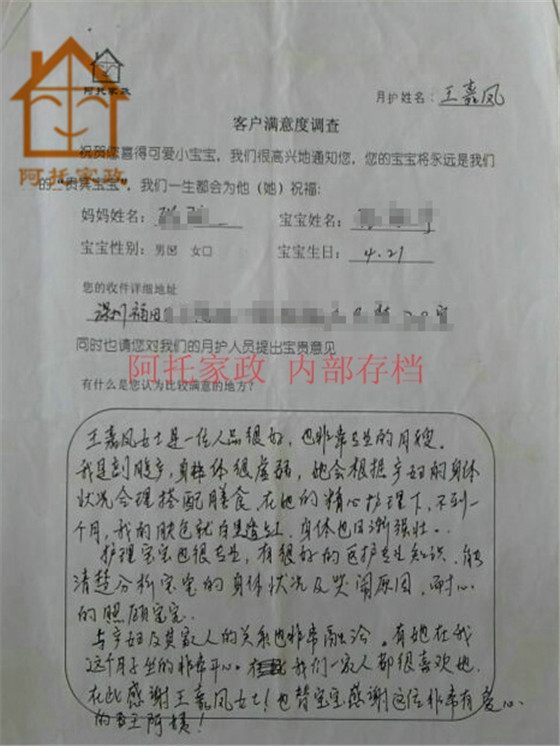 阿托家政
阿托家政
月护姓名：王嘉凤
客户满意度调查
祝贺您喜得可爱小宝宝，我们很高兴地通知您，您的宝宝将永远是我们
的“贵宾宝宝”，我们一生都会为他（她）祝福：
妈妈姓名：
宝宝姓名：
宝宝性别： 男 女□
宝宝生日： 4.21
您的收件详细地址
深圳福田
同时也请您对我们的月护人员提出宝贵意见
阿托家政 内部存档
有什么是您认为比较满意的地方？
王嘉凤女士是一位人品很好，也非常专业的月嫂。
我是剖腹产，身体很虚弱，她会根据产妇的身体
状况合理搭配膳食，在她的精心护理下，不到一
个月，我的肤色就白里透红，身体也日渐强壮。
护理宝宝也很专业，有很好的医护专业知识，能
清楚分析宝宝的身体状况及哭闹原因，耐心
的照顾宝宝
与产妇及其家人的关系也非常融洽。有她在我
这个月子坐的非常开心。我们一家人都很喜欢她
在此感谢王嘉凤女士！也替宝宝感谢这位非常有爱心
的王阿姨！